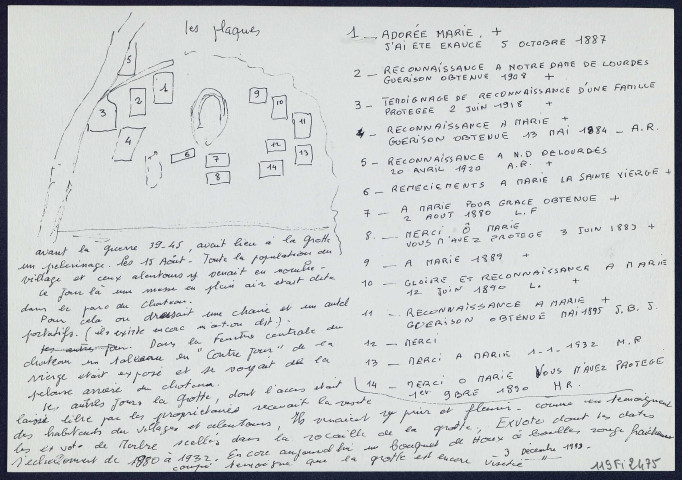 les plaques
5
3
2
1
4
6
7
8
9
10
11
12
13
14
1 _ ADORÉE MARIE. +
J'AI ETE EXAUCÉ 5 OCTOBRE 1887
2 _ RECONNAISSANCE A NOTRE DAME DE LOURDES
GUERISON OBTENUE 1908 +
3 _ TEMOIGNAGE DE RECONNAISSANCE D'UNE FAMILLE
PROTEGEE 2 JUIN 1918 +
4 _ RECONNAISSANCE A MARIE +
GUERISON OBTENUE 13 MAI 1884 _ A.R.
5 _ RECONNAISSANCE A N.D DE LOURDES
20 AVRIL 1920 A.R. +
6 _ REMECIEMENTS A MARIE LA SAINTE VIERGE +
7 _ A MARIE POUR GRACE OBTENUE +
2 AOUT 1880 L.F
8. _ MERCI Ô MARIE
VOUS M'AVEZ PROTEGE 3 JUIN 1889 +
9 _ A MARIE 1889 +
10 _ GLOIRE ET RECONNAISSANCE A MARIE
12 JUIN 1890 L. +
11 _ RECONNAISSANCE A MARIE +
GUERISON OBTENUE MAI 1895 J.B.J.
12 _ MERCI
13 _ MERCI A MARIE 1-1-1932 M.R
14 _ MERCI O MARIE VOUS M'AVEZ PROTEGE
1er 9BRE 1890 H.R.
avant la guerre 39-45, avait lieu à la grotte
un pelerinage. les 15 Août. Toute la population du
village et ceux alentours y venait en nombre.
Ce jour là une messe en plein air était dite
dans le parc du chateau.
Pour cela on dressait une chaire et un autel
portatifs. (ils existe encore m'a-t-on dit.)
les autres jours. Dans la fenêtre centrale du
chateau un tableau en "Contre Jour" de la
vierge était exposé et se voyait de la
pelouse arrosé du chateau.
les autres jours la grotte, dont l'accès était
laissé libre par les propriétaires recevait la visite
des habitants du villages et alentours, Ils venaient y prier et fleurir. comme en temoignent
les ex voto de Marbre scellés dans la rocaille de la grotte, Exvoto dont les dates
s'echelonnent de 1880 à 1932. Encore aujourd'hui un bouquet de Houx à boulles rouge fraichement
coupé temoigne que la grotte est encore visitée
3 Decembre 1993.
119Fi2475